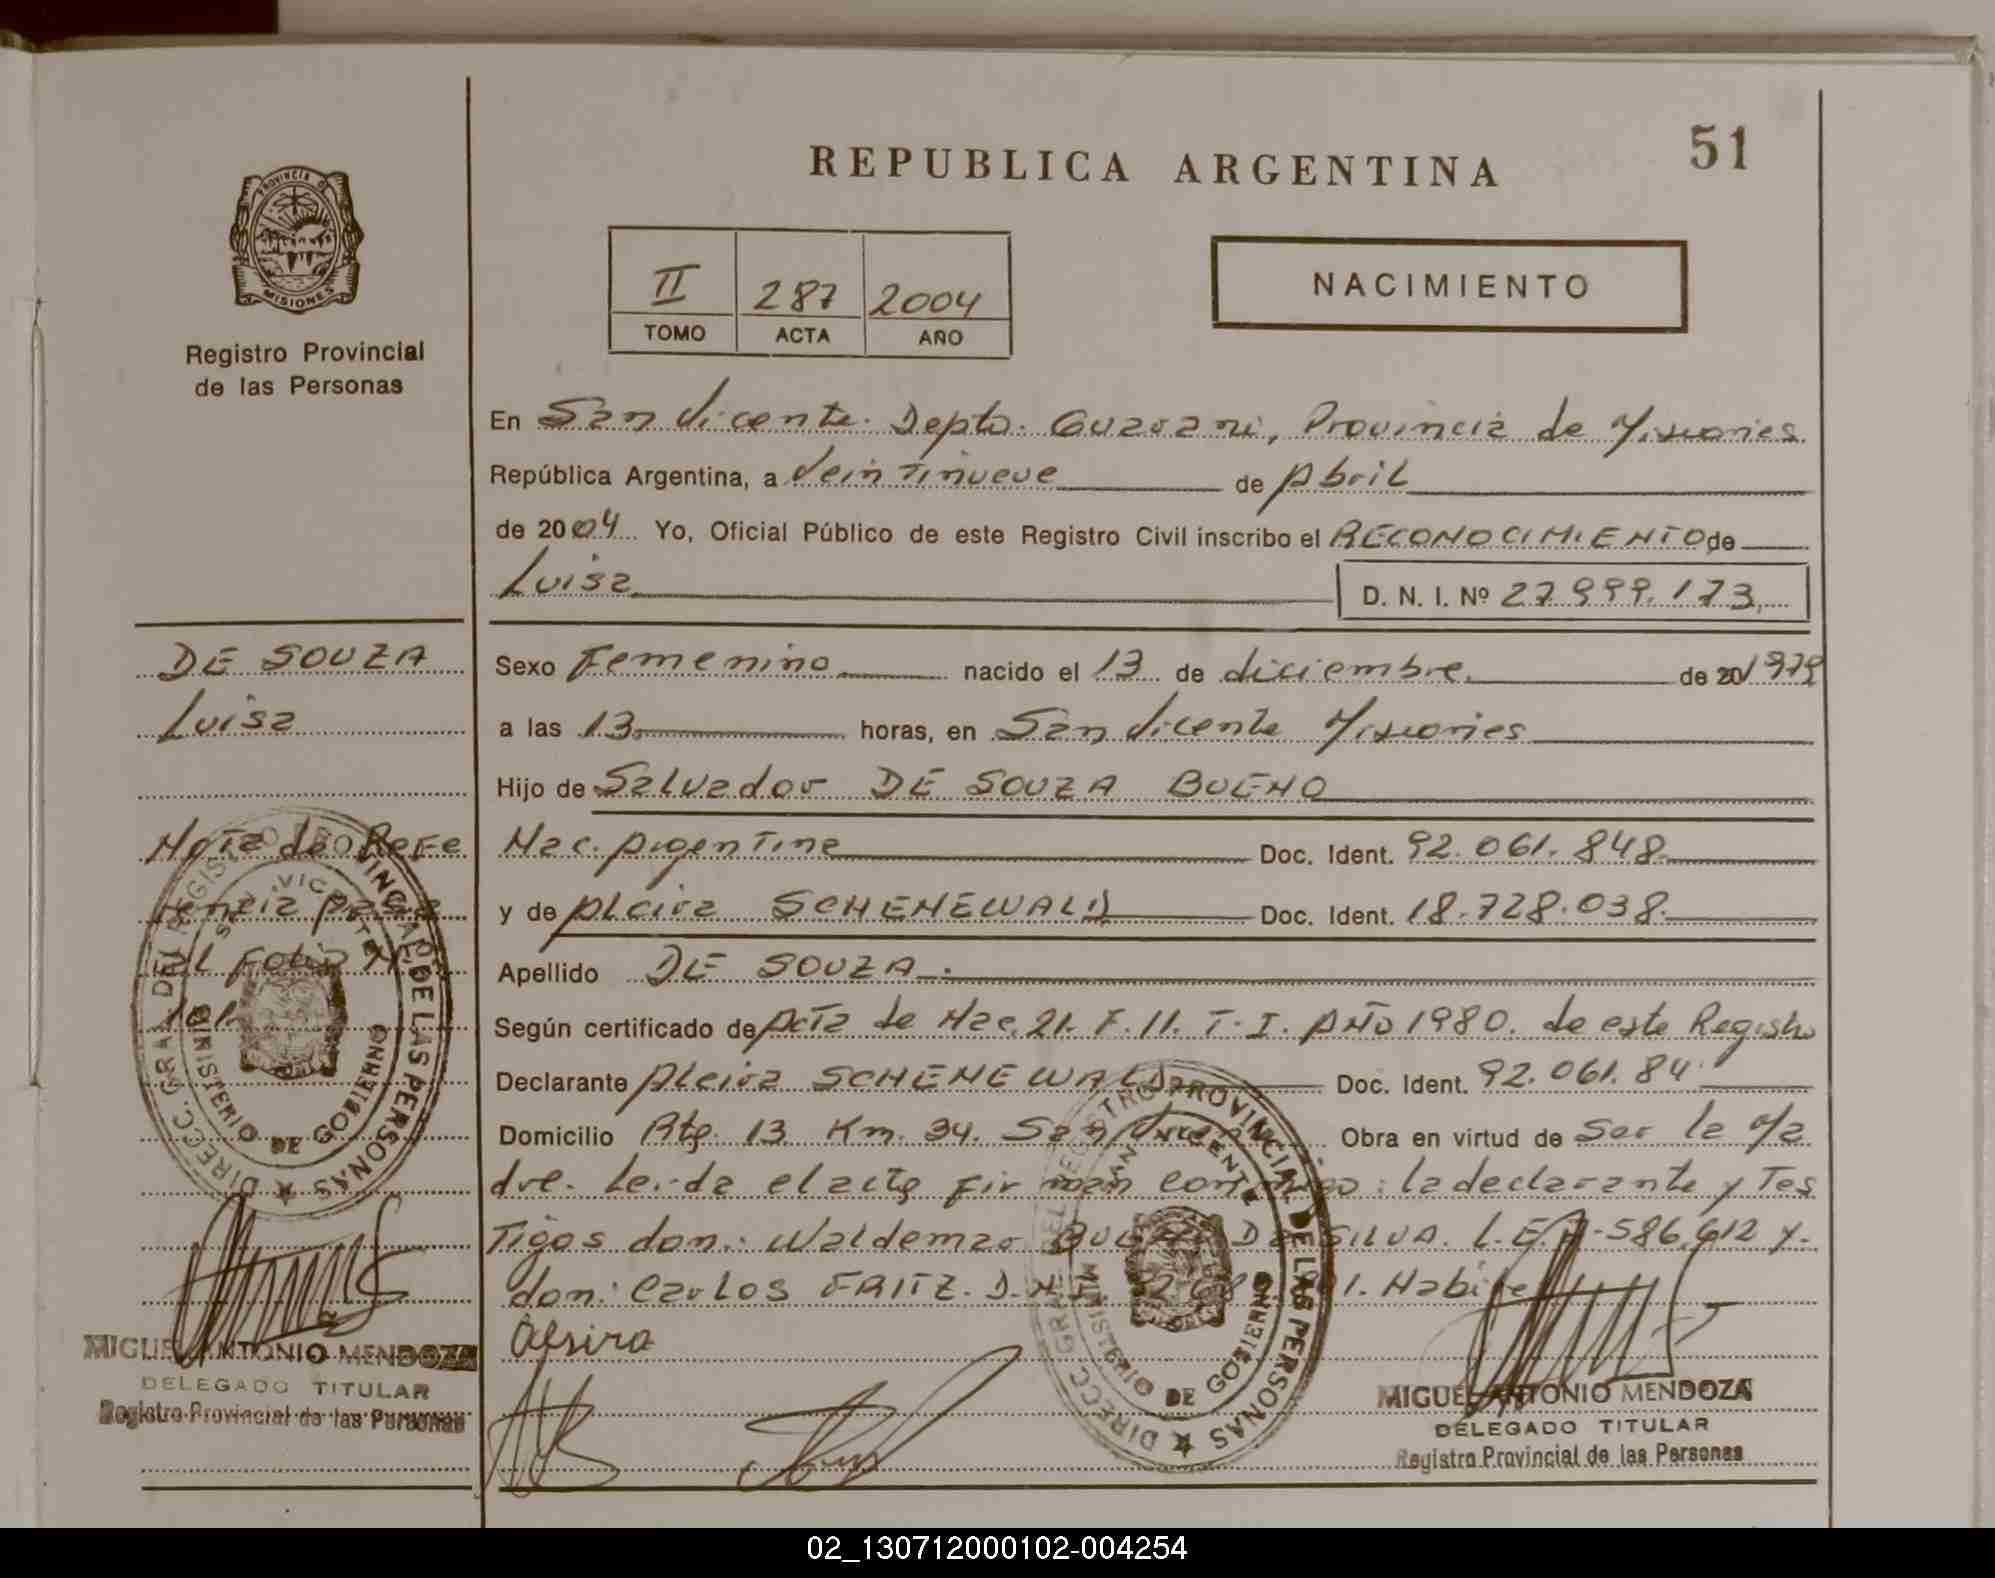 51
REPUBLICA ARGENTINA
PROVINCIA DE
MISIONES
Registro Provincial
de las Personas
II 287 2004
TOMO ACTA AÑO
NACIMIENTO
En San Vicente. Depto. Guarani, Provincia de Misiones.
República Argentina, a Veintinueve de Abril
de 2004 Yo, Oficial Público de este Registro Civil inscribo el RECONOCIMIENTO de
Luisa D. N. I. Nº 27.999.173.
DE SOUZA
Luisa
Sexo Femenino nacido el 13 de diciembre de 20 1979
a las 13 horas, en San Vicente Misiones
Hijo de Salvador DE SOUZA BUENO
Nac. Argentina Doc. Ident. 92.061.848.
y de Alcira SCHENEWALD Doc. Ident. 18.728.038.
Apellido DE SOUZA.
Según certificado de Acta de Nac. 21. F. 11. T. I. Año 1980. de este Registro
Declarante Alcira SCHENEWALD Doc. Ident. 92.061.84
Domicilio Rta. 13 Km. 34. San Vicente Obra en virtud de Ser la Ma
dre. Leida el acta firman conmigo: la declarante y Tes
Tigos don: Waldemar DA SILVA. L.E. 586.612 y.
don: Carlos FRITZ. D.N.I. Habi
Nota de Refe
rencia pasa
al Folio
DIRECC. GRAL. DEL REGISTRO PROVINCIAL DE LAS PERSONAS
SAN VICENTE
MINISTERIO DE GOBIERNO
MIGUEL ANTONIO MENDOZA
DELEGADO TITULAR
Registro Provincial de las Personas
DIRECC. GRAL. DEL REGISTRO PROVINCIAL DE LAS PERSONAS
SAN VICENTE
MINISTERIO DE GOBIERNO
MIGUEL ANTONIO MENDOZA
DELEGADO TITULAR
Registro Provincial de las Personas
02_130712000102-004254